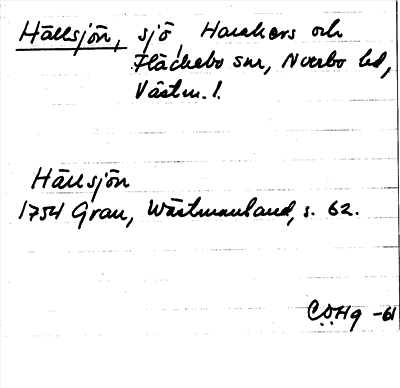 Hällsjön, sjö, Haraker och
Fläckebo snr, Norrbo hd,
Västm. l.
Hällsjön
1754 Grau, Wästmanland, s. 62.
C.O.Hg -61